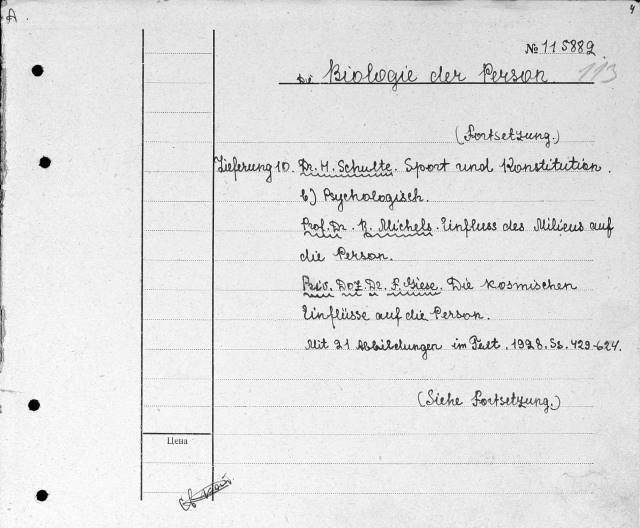 A
4
№ 115882.
Die Biologie der Person. 113
(Fortsetzung.)
Lieferung 10. Dr. H. Schulte. Sport und Konstitution.
b) Psychologisch.
Prof. Dr. R. Michels. Einfluss des Milieus auf
die Person.
Priv. Doz. Dr. F. Giese. Die kosmischen
Einflüsse auf die Person.
Mit 21 Abbildungen im Text. 1928. Ss. 429-624.
(Siehe Fortsetzung.)
Цена